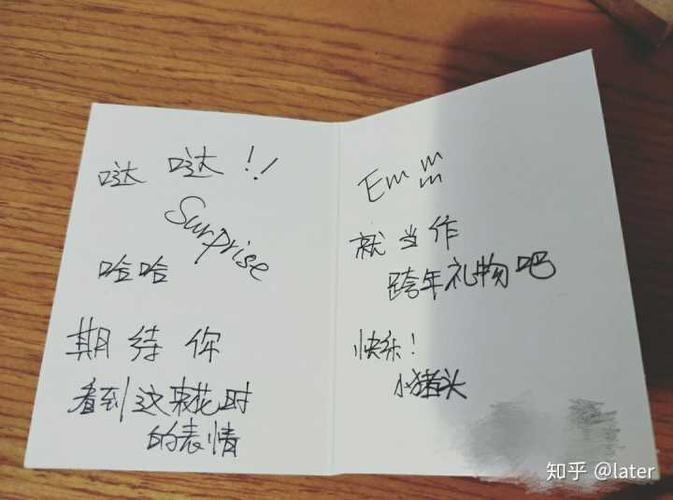 哒 哒 !!
Surprise
哈哈
期 待 你
看到这束花时
的表情
Emmmm
就 当 作
跨年礼物吧
快乐!
小猪头
知乎 @later